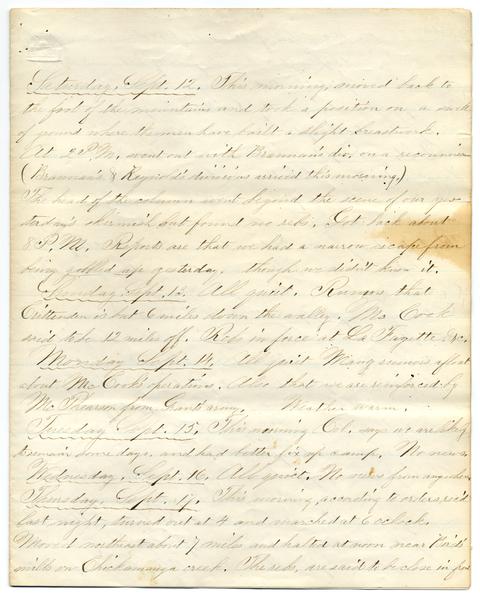 Saturday, Sept. 12. This morning, moved back to
the foot of the mountains and took a position on a
of ground where the men have built a slight breastwork.
At 2 P.M. went out with Brannan's div. on a
(Brannan's & Reynolds' divisions arrived this morning.)
The head of the column went beyond the scene of our yes-
terday's skirmish but found no rebs. Got back about
8 P.M. Reports are that we had a narrow escape from
being gobbled up yesterday, though we didn't know it.
Sunday, Sept. 13. All quiet. Rumors that
Crittenden is but 6 miles down the valley. Mc Cook
said to be 12 miles off. Rebs in force at La Fayette &c.
Monday, Sept. 14. All quiet Many rumors afloat
about Mc Cook's operations. Also that we are reinforced by
Mc Phearson from Grant' army. Weather warm.
Tuesday, Sept. 15. This morning Col. says we are likely
remain some days, and had better fix up camp. No news.
Wednesday, Sept. 16. All quiet. No news from anywhere
Thursday, Sept. 17. This morning, according to orders rec'd
last night, turned out at 4 and marched at 6 oclock.
Moved northeast about 7 miles and halted at noon near Bird's
mills on Chickamauga creek. The rebs, are said to be close in front